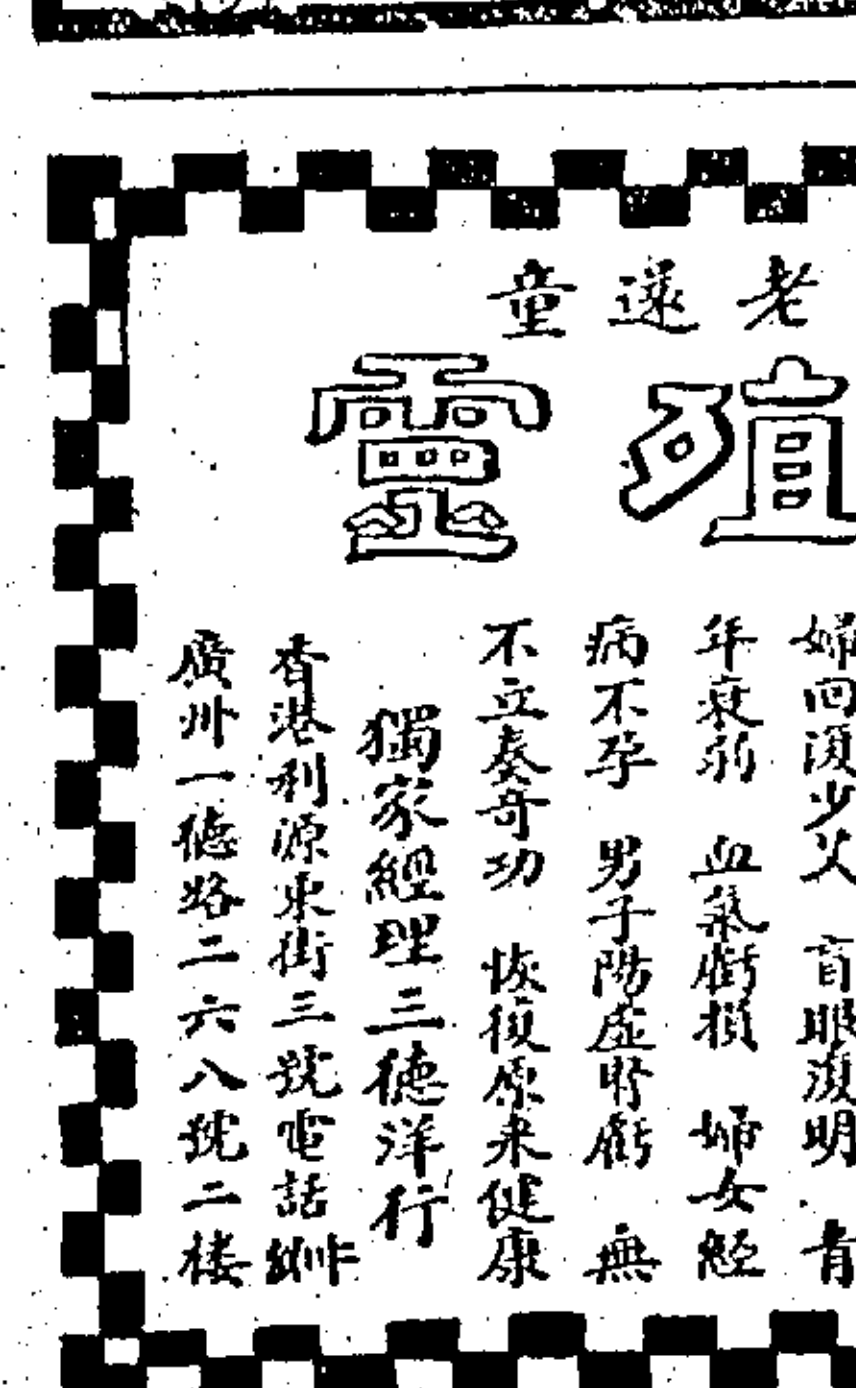 老還童
殖靈
婦回復少艾　盲眼復明　青
年衰弱　血氣虧損　婦女經
病不孕　男子陽虛腎虧　無
不立奏奇功　恢復原来健康
獨家經理三德洋行
香港利源東街三號電話
廣州一德路二六八號二楼